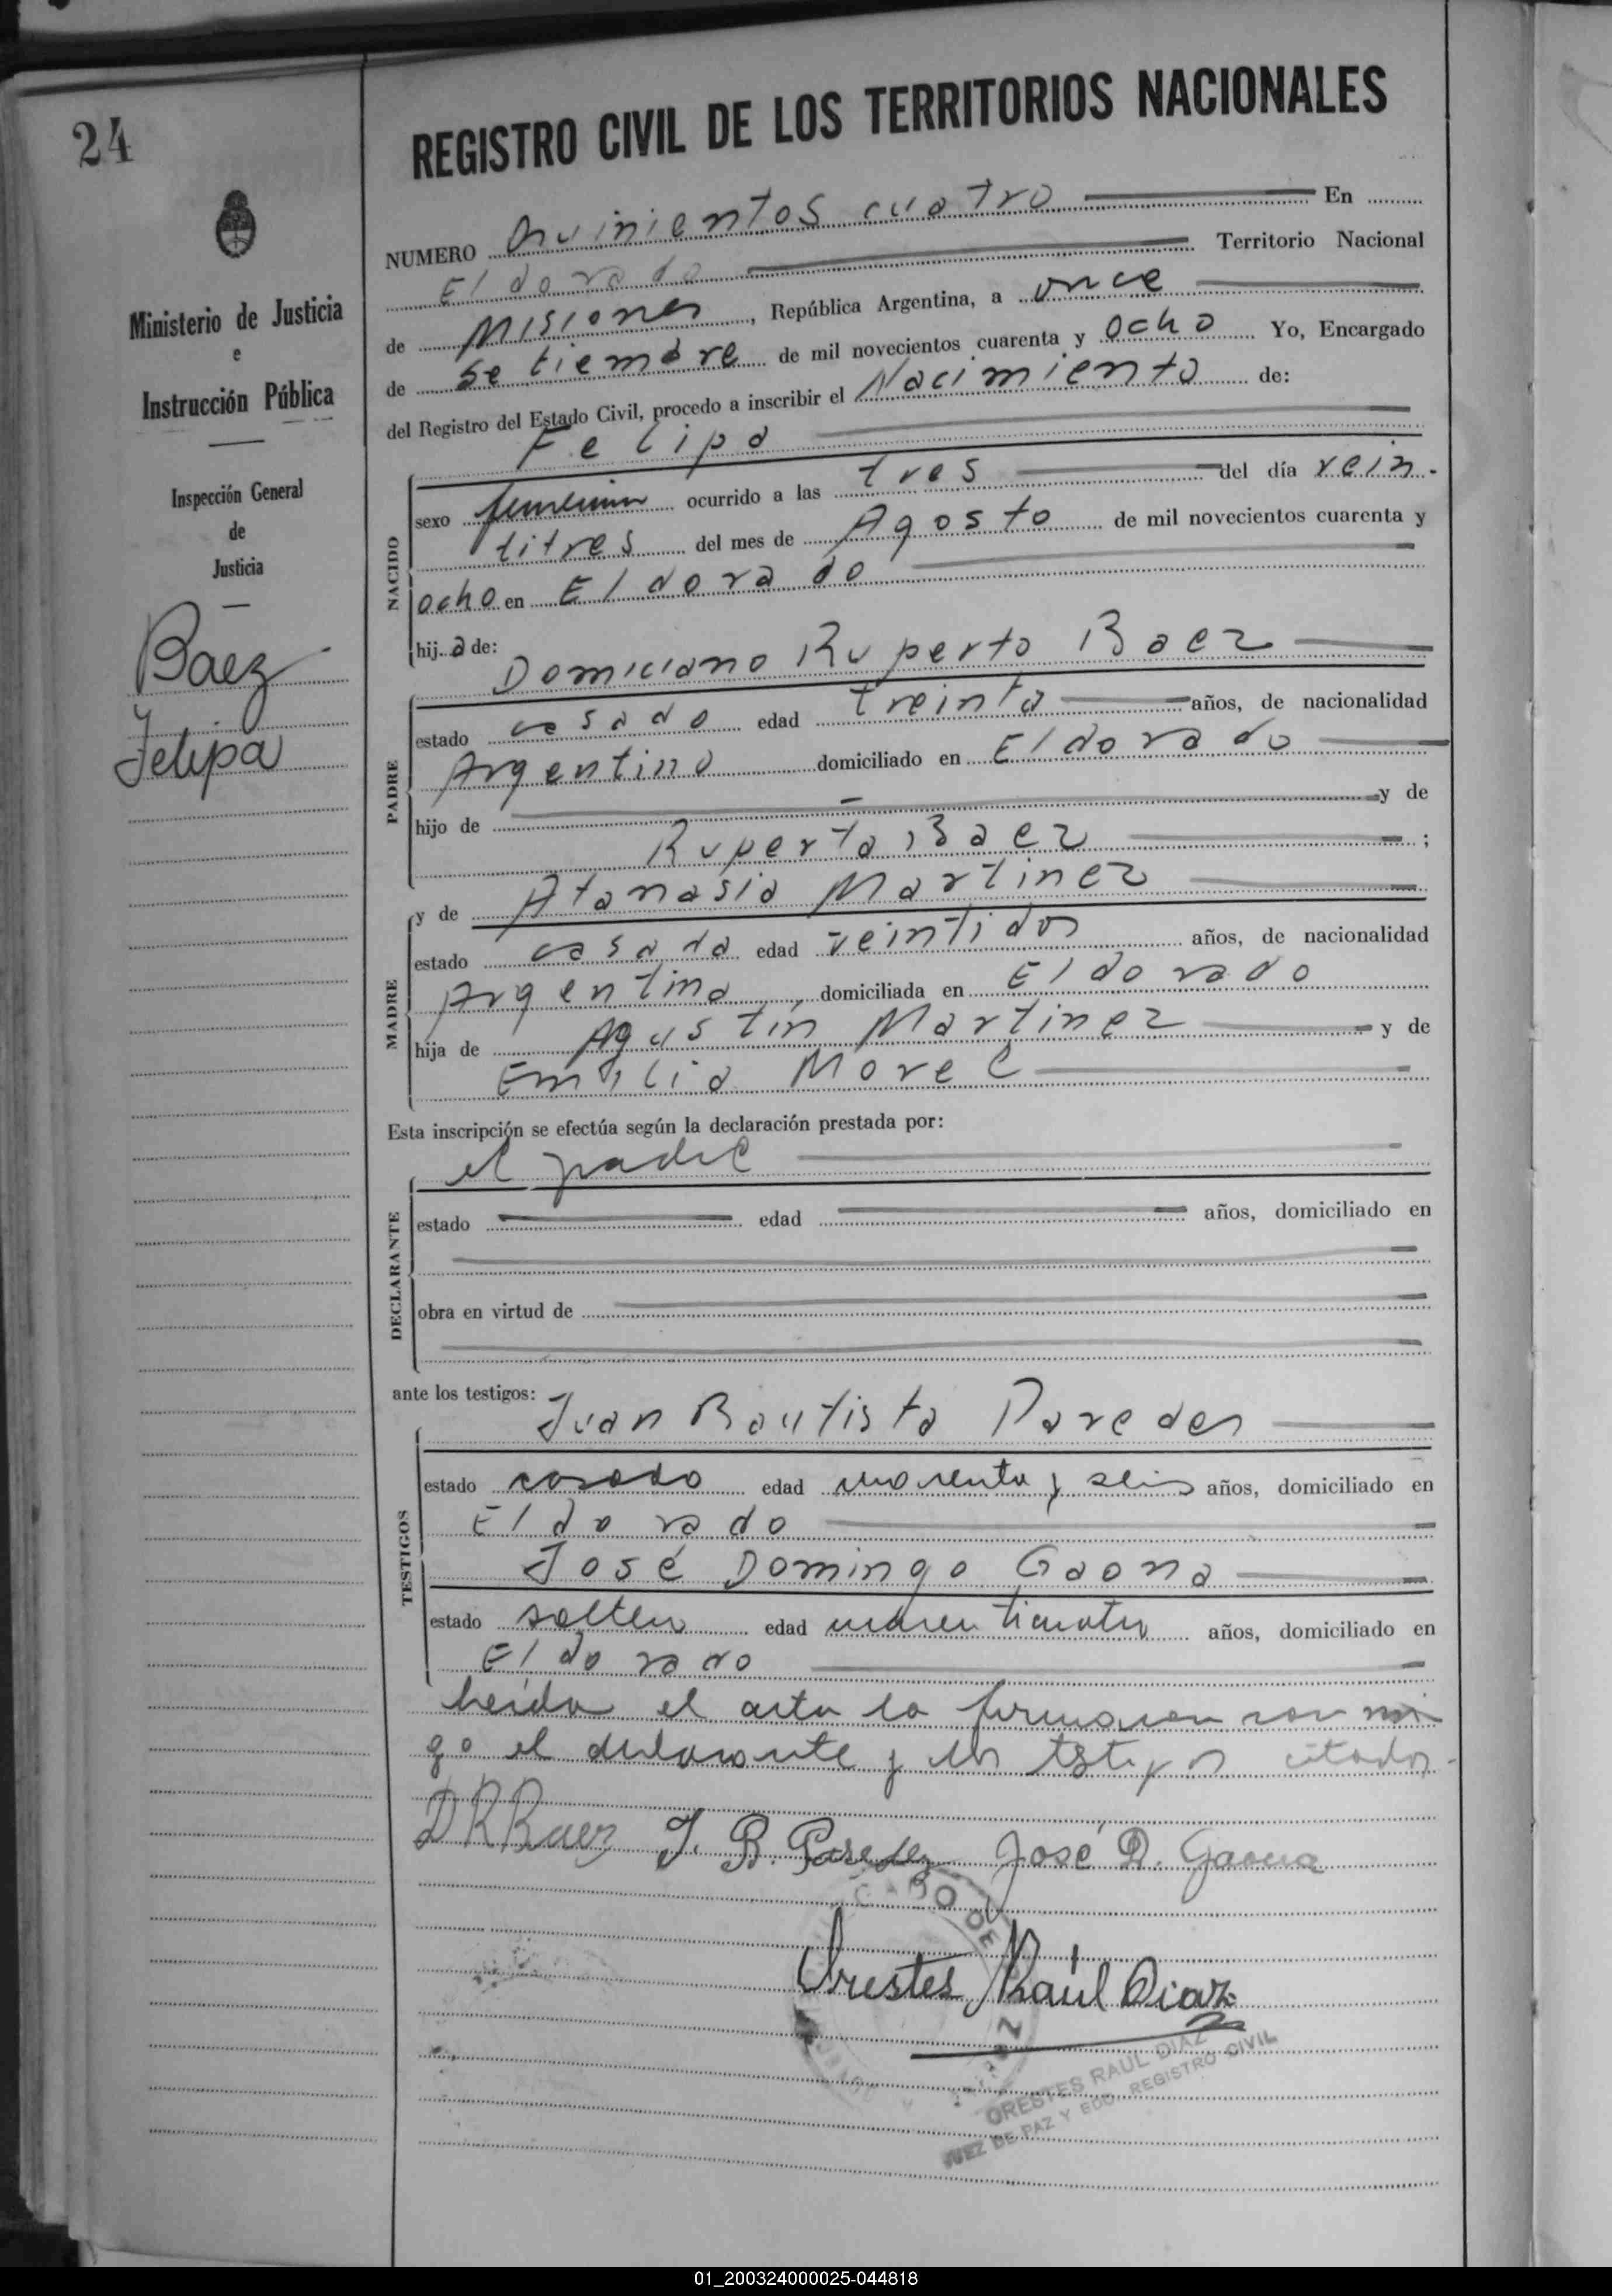 24
Ministerio de Justicia
e
Instrucción Pública
Inspección General
de
Justicia
Baez
Felipa
REGISTRO CIVIL DE LOS TERRITORIOS NACIONALES
NUMERO Quinientos cuatro En
Eldorado Territorio Nacional
de Misiones, República Argentina, a once
de setiembre de mil novecientos cuarenta y ocho Yo, Encargado
del Registro del Estado Civil, procedo a inscribir el Nacimiento de:
Felipa
NACIDO
sexo femenino ocurrido a las tres del día vein-
titres del mes de Agosto de mil novecientos cuarenta y
ocho en Eldorado
hija de:
Domiciano Ruperto Baez
PADRE
estado casado edad treinta años, de nacionalidad
Argentino domiciliado en Eldorado
hijo de y de
Ruperta Baez ;
y de Atanasia Martinez
MADRE
estado casada edad veintidos años, de nacionalidad
Argentina, domiciliada en Eldorado
hija de Agustín Martinez y de
Emilia Morel
Esta inscripción se efectúa según la declaración prestada por:
el padre
DECLARANTE
estado edad años, domiciliado en
obra en virtud de
ante los testigos:
Juan Bautista Paredes
TESTIGOS
estado casado edad cuarenta y seis años, domiciliado en
Eldorado
José Domingo Gaona
estado soltero edad cuarenticuatro años, domiciliado en
Eldorado
Leida el acta la firmaron con mi
go el declarante y los testigos citados.
DRBaez J. B. Paredez José D. Gaona
Orestes Raúl Diaz
ORESTES RAUL DIAZ
JUEZ DE PAZ Y ECDO. REGISTRO CIVIL
01_200324000025-044818